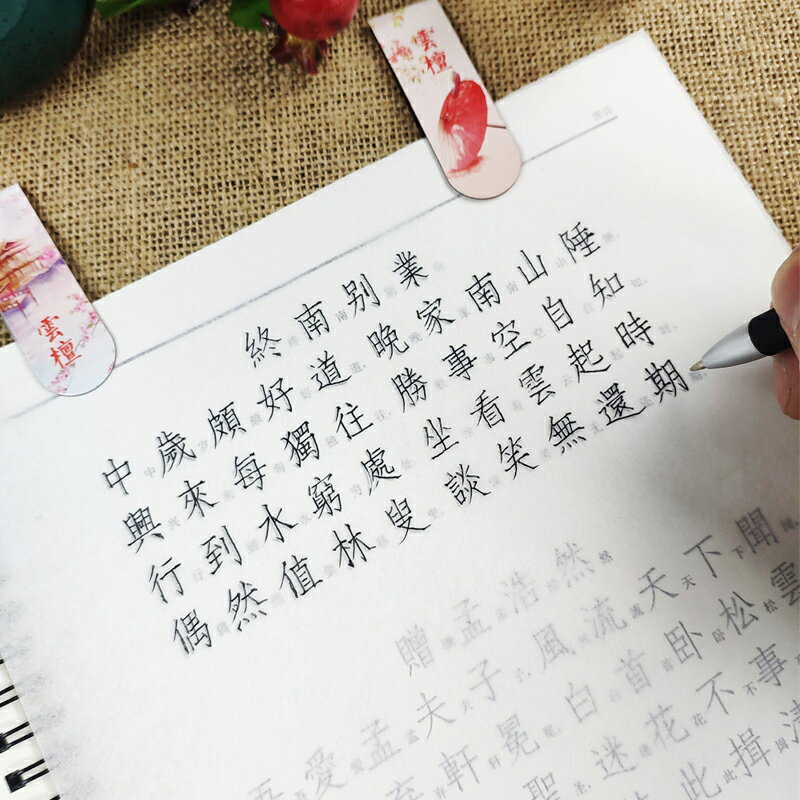 雲檀
雲檀
終南别業
中歲頗好道 晚家南山陲
興來每獨往 勝事空自知
行到水窮處 坐看雲起時
偶然值林叟 談笑無還期
贈孟浩然
吾愛孟夫子 風流天下聞
軒冕 白首卧松雲
聖 迷花不事
此揖清